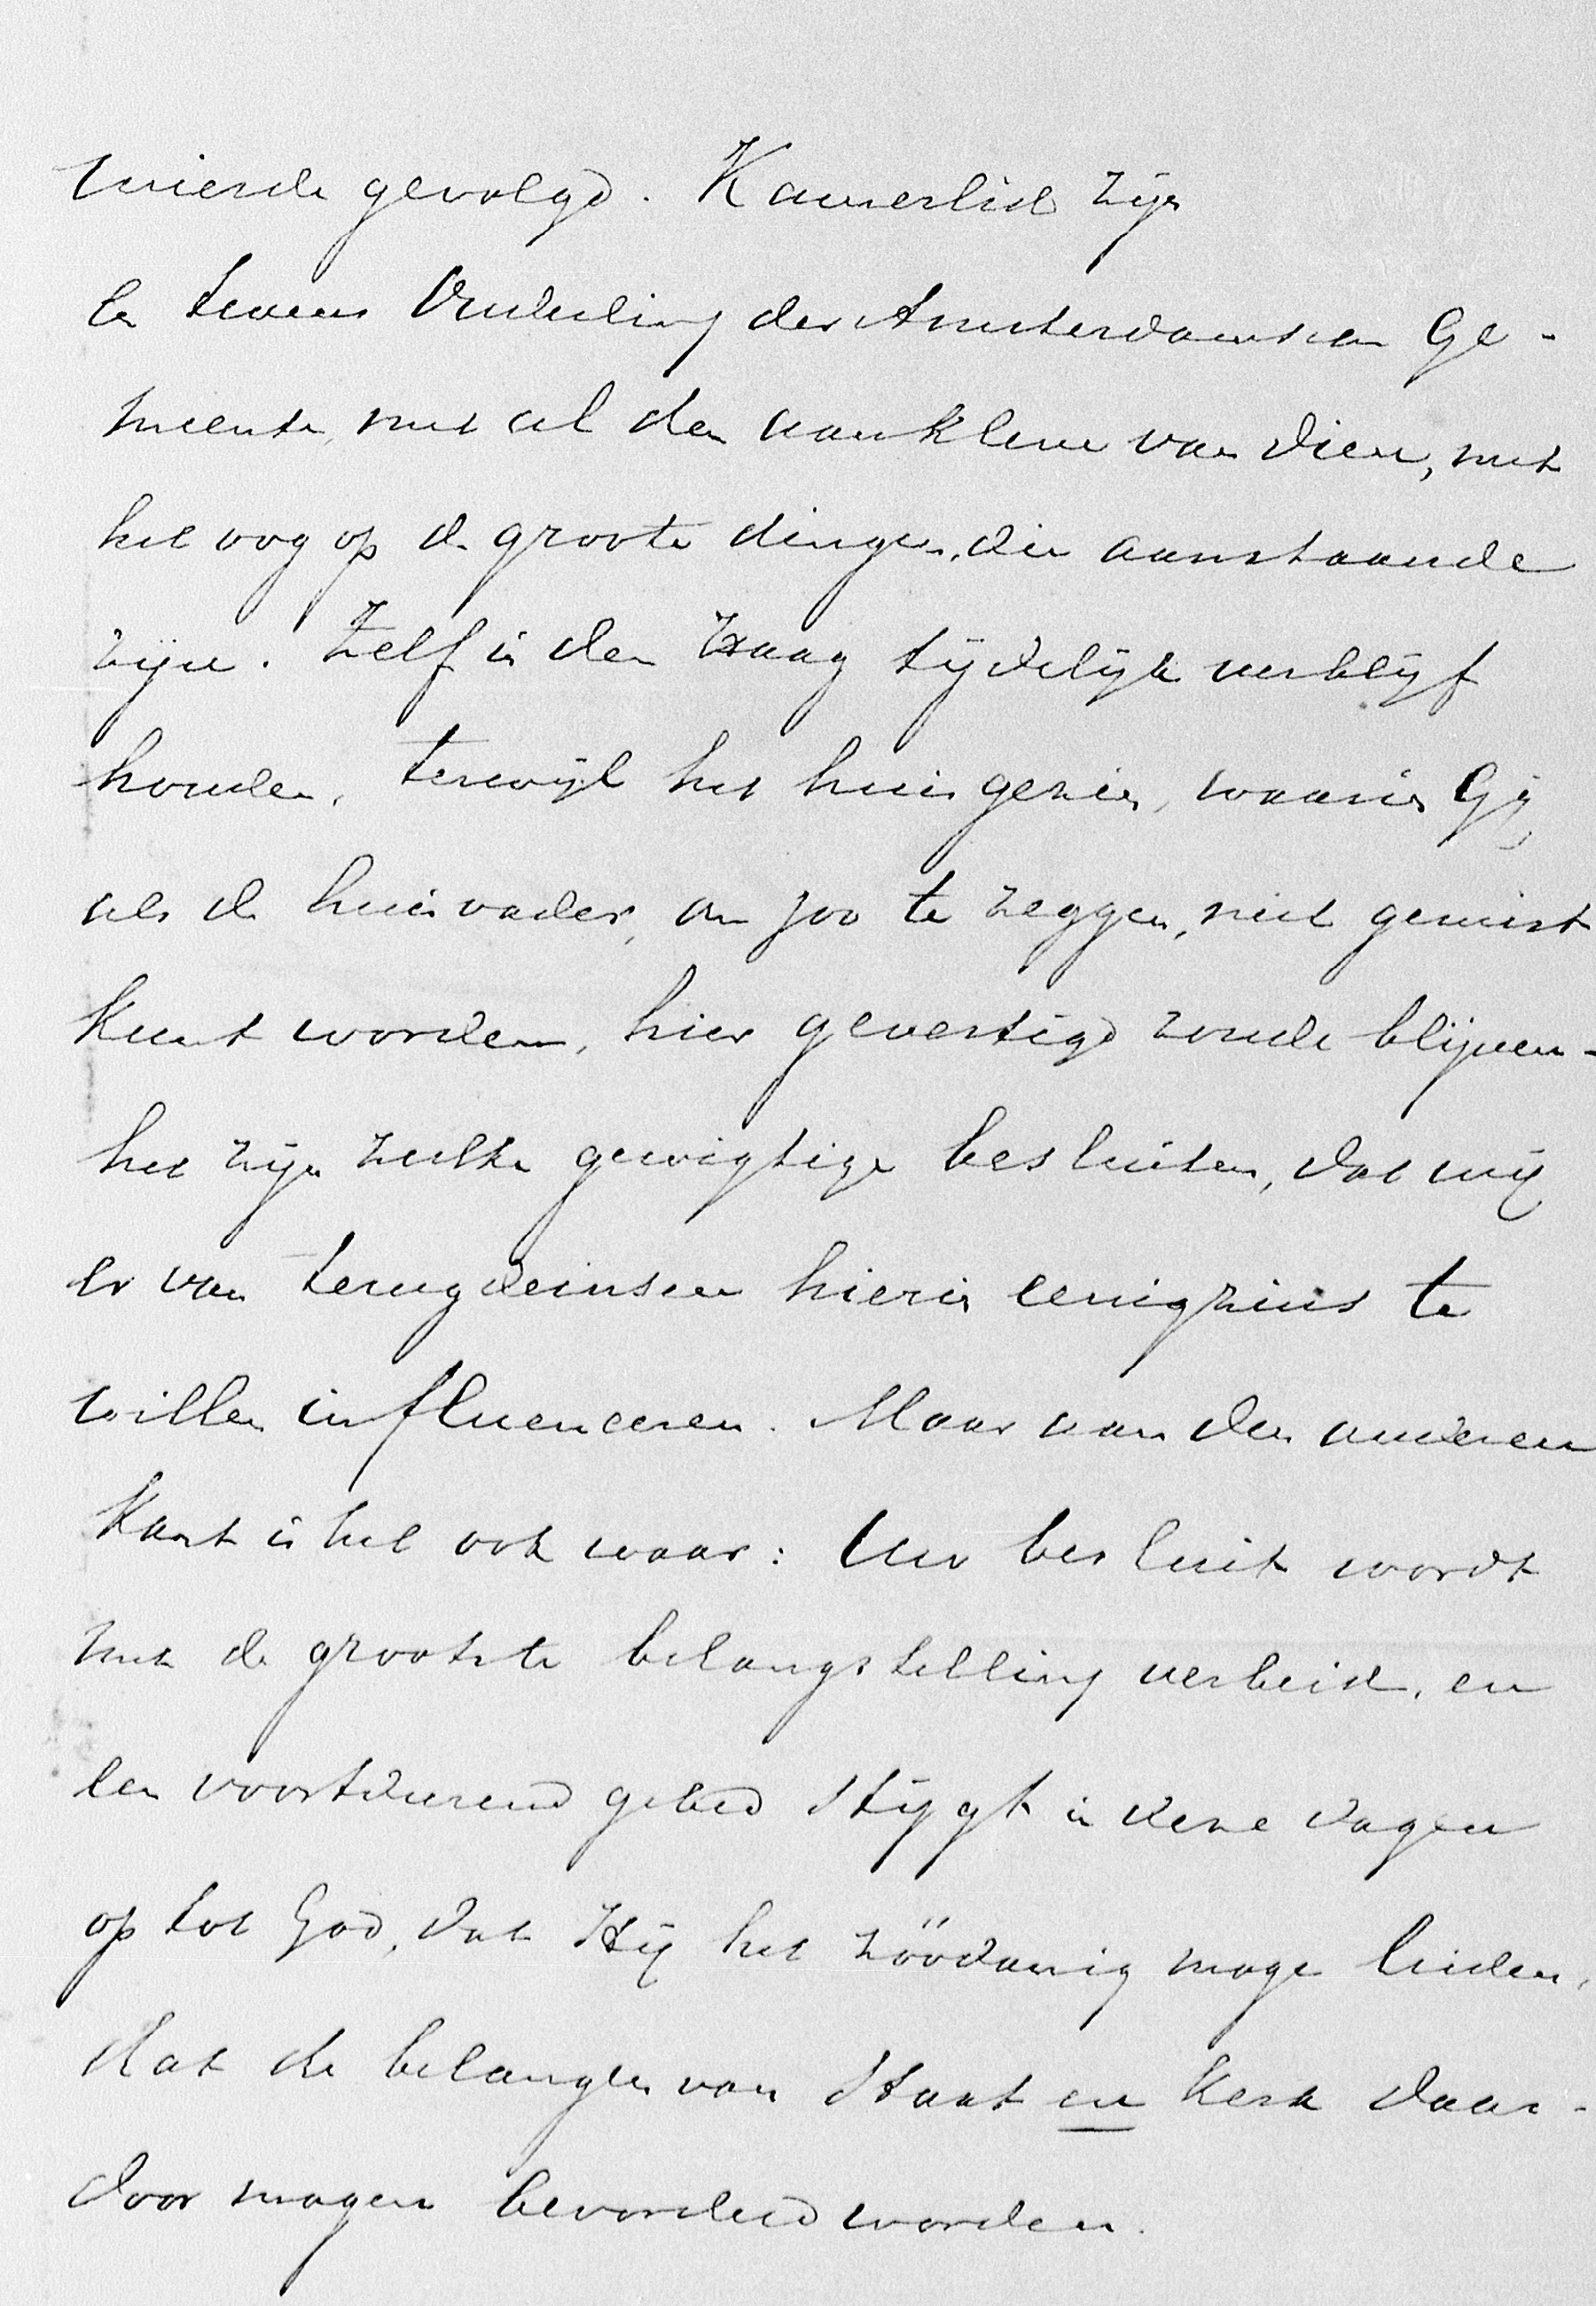 wierde gevolgd. Kamerlid zijn
en tevens Ouderling der Amsterdamschen Ge-
meente, met al den aankleve van dien, met
het oog op de groote dingen, die aanstaande
zijn. Zelf in den Haag tijdelijk verblijf
houden, terwijl het huisgezin, waarin Gij
als de huisvader, om zoo te zeggen, niet gemist
kunt worden, hier gevestigd zoude blijven -
het zijn zulke gewigtige besluiten, dat wij
er van terugdeinsen hierin eenigzins te
willen influenceren. Maar aan den anderen
kant is het ook waar: Uw besluit wordt
met de grootste belangstelling verbeid, en
een voortdurend gebed stijgt in deze dagen
op tot God, dat Hij het zóódanig moge leiden,
dat de belangen van Staat en Kerk daar-
door mogen bevorderd worden.